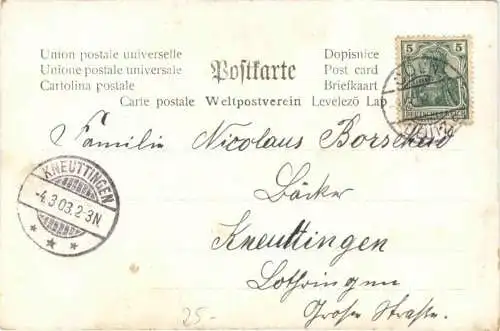 Union postale universelle
Unione postale universale
Cartolina postale
Postkarte
Dopisnice
Post card
Briefkaart
Carte postale Weltpostverein Levelező Lap
5 5
Familie Nicolaus
Bäcker
Kneuttingen
Lothringen
Große Straße.
KNEUTTINGEN
-4.3.03.2-3N
25-